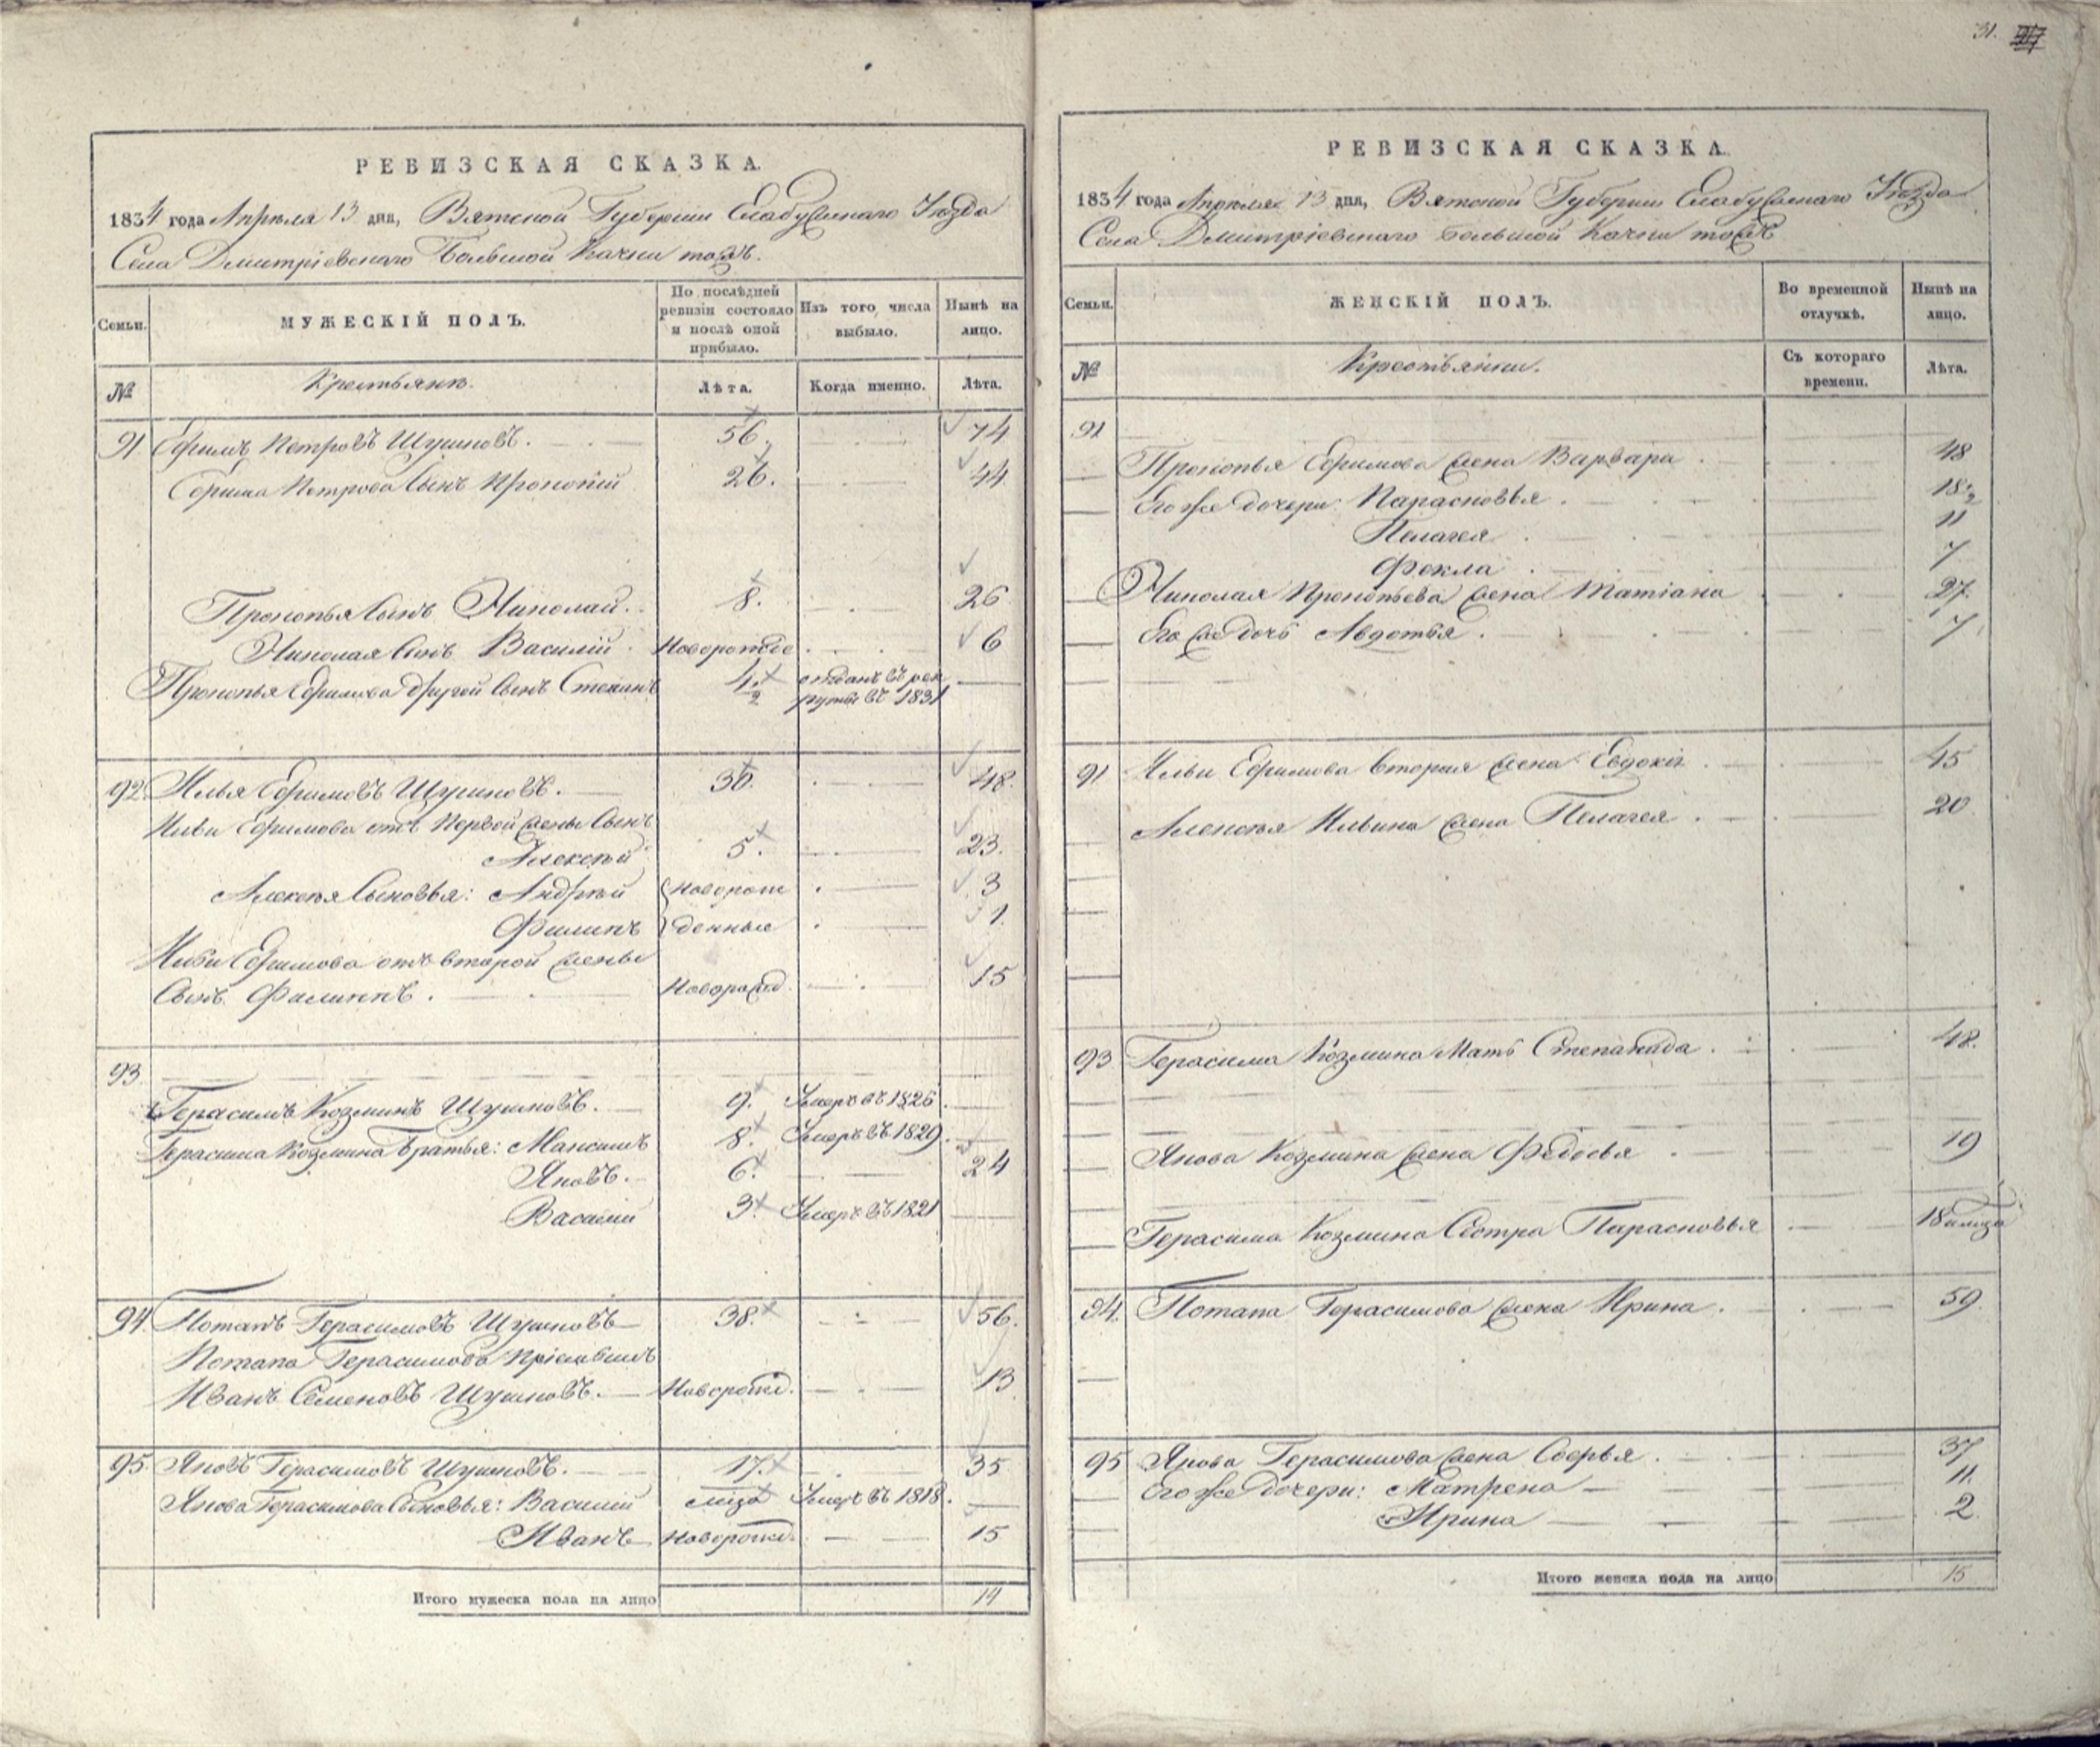 31. 317
РЕВИЗСКАЯ СКАЗКА.
1834 года Апреля 13 дня, Вятской Губернии Елабужскаго Уезда
Села Дмитріевскаго Большой Качки тожъ.
Семьи.
МУЖЕСКІЙ ПОЛЪ.
По послѣдней ревизіи состояло и послѣ оной прибыло.
Изъ того числа выбыло.
Нынѣ на лицо.
№
Крестьяне.
Лѣта.
Когда именно.
Лѣта.
91 Ефимъ Петровъ 56. 74
Ефима Петрова Сынъ Прокопій 26. 44
Прокопья Сынъ Николай. 8. 26
Николая Сынъ Василій Новорожде 6
Прокопья Ефимова другой Сынъ Степанъ 4 1/2 отданъ въ рек
руты въ 1831
92 Илья Ефимовъ 30. 48.
Ильи Ефимова отъ первой жены Сынъ
Алексѣй 5. 23.
Алексѣя Сыновья: Андрѣй новорож 3
Филипъ денные 1.
Ильи Ефимова отъ второй жены
Сынъ Филиппъ. Новорожд. 15
93.
Герасимъ Козминъ 9. Умеръ въ 1826.
Герасима Козмина братья: Максимъ 8. Умеръ въ 1829.
Яковъ. 6. 24
Василій 3. Умеръ въ 1821
94. Потапъ Герасимовъ 38. 56.
Потапа Герасимова пріемышъ
Иванъ Семеновъ Новорожд. 13
95. Яковъ Герасимовъ 17. 35
Якова Герасимова Сыновья: Василій Умеръ въ 1818.
Иванъ новорожд. 15
Итого мужеска пола на лицо 14
РЕВИЗСКАЯ СКАЗКА.
1834 года Апреля 13 дня, Вятской Губерніи Елабужскаго Уезда
Села Дмитріевскаго Большой Качки тожъ
Семьи.
ЖЕНСКІЙ ПОЛЪ.
Во временной отлучкѣ.
Нынѣ на лицо.
№
Крестьянки.
Съ котораго времени.
Лѣта.
91
Прокопья Ефимова жена Варвара 48
Его же дочери: Парасковья 18 1/2
Пелагея 11
Фекла 7
Николая Прокопьева жена Татіана 27.
Его же дочь Авдотья. 7
91 Ильи Ефимова вторая жена Евдокія 45
Алексѣя Ильина жена Пелагея 20
93 Герасима Козмина Мать Степанида. 48.
Якова Козмина жена Федосья 19
Герасима Козмина Сестра Парасковья
94. Потапа Герасимова жена Ирина. 59.
95 Якова Герасимова жена Софья. 37
Его же дочери: Матрена 11.
Ирина 2.
Итого женска пола на лицо 15